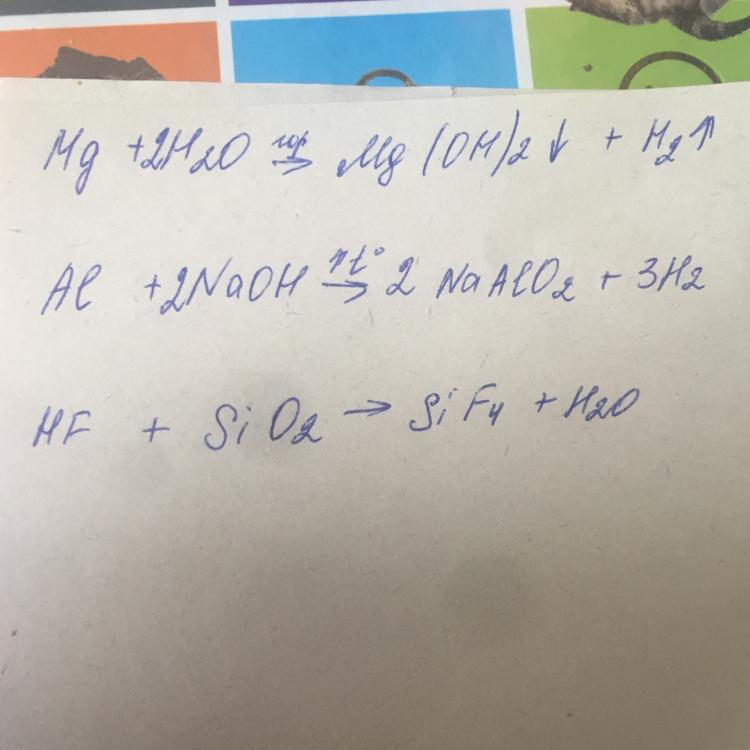 Mg + 2H2O гор → Mg(OH)2 ↓ + H2↑
Al + 2NaOH ↑t° → 2 NaAlO2 + 3H2
HF + SiO2 → SiF4 + H2O